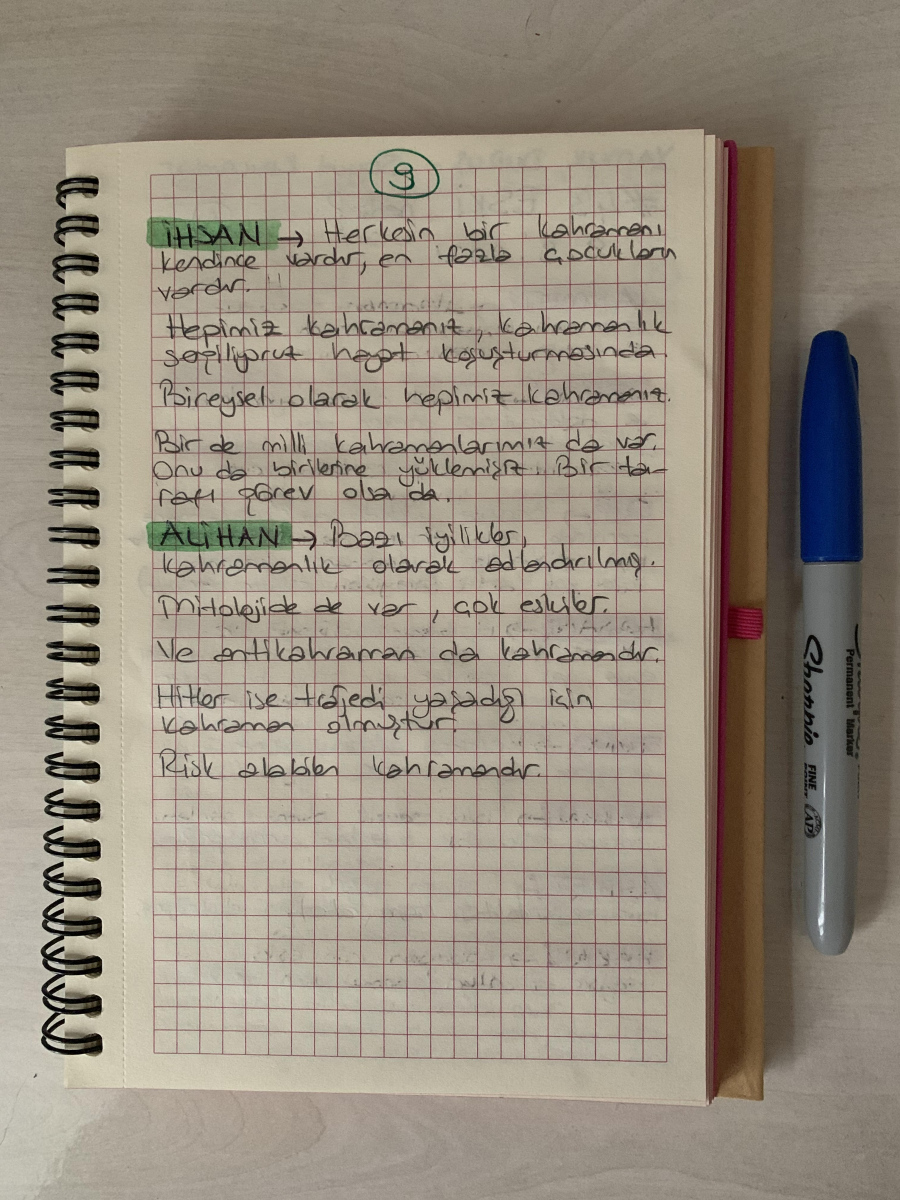 9
İHSAN → Herkesin bir kahramanı
kendince vardır, en fazla çocukların
vardır.
Hepimiz kahramanız, kahramanlık
sergiliyoruz hayat koşuşturmasında.
Bireysel olarak hepimiz kahramanız.
Bir de milli kahramanlarımız da var.
Onu da birilerine yüklemişiz. Bir ta-
rafı görev olsa da.
ALİHAN → Bazı iyilikler,
kahramanlık olarak adlandırılmış.
Mitolojide de var, çok eskiler.
Ve antikahraman da kahramandır.
Hitler ise trajedi yaşadığı için
kahraman olmuştur.
Risk alabilen kahramandır.
Permanent Marker
FINE
AP